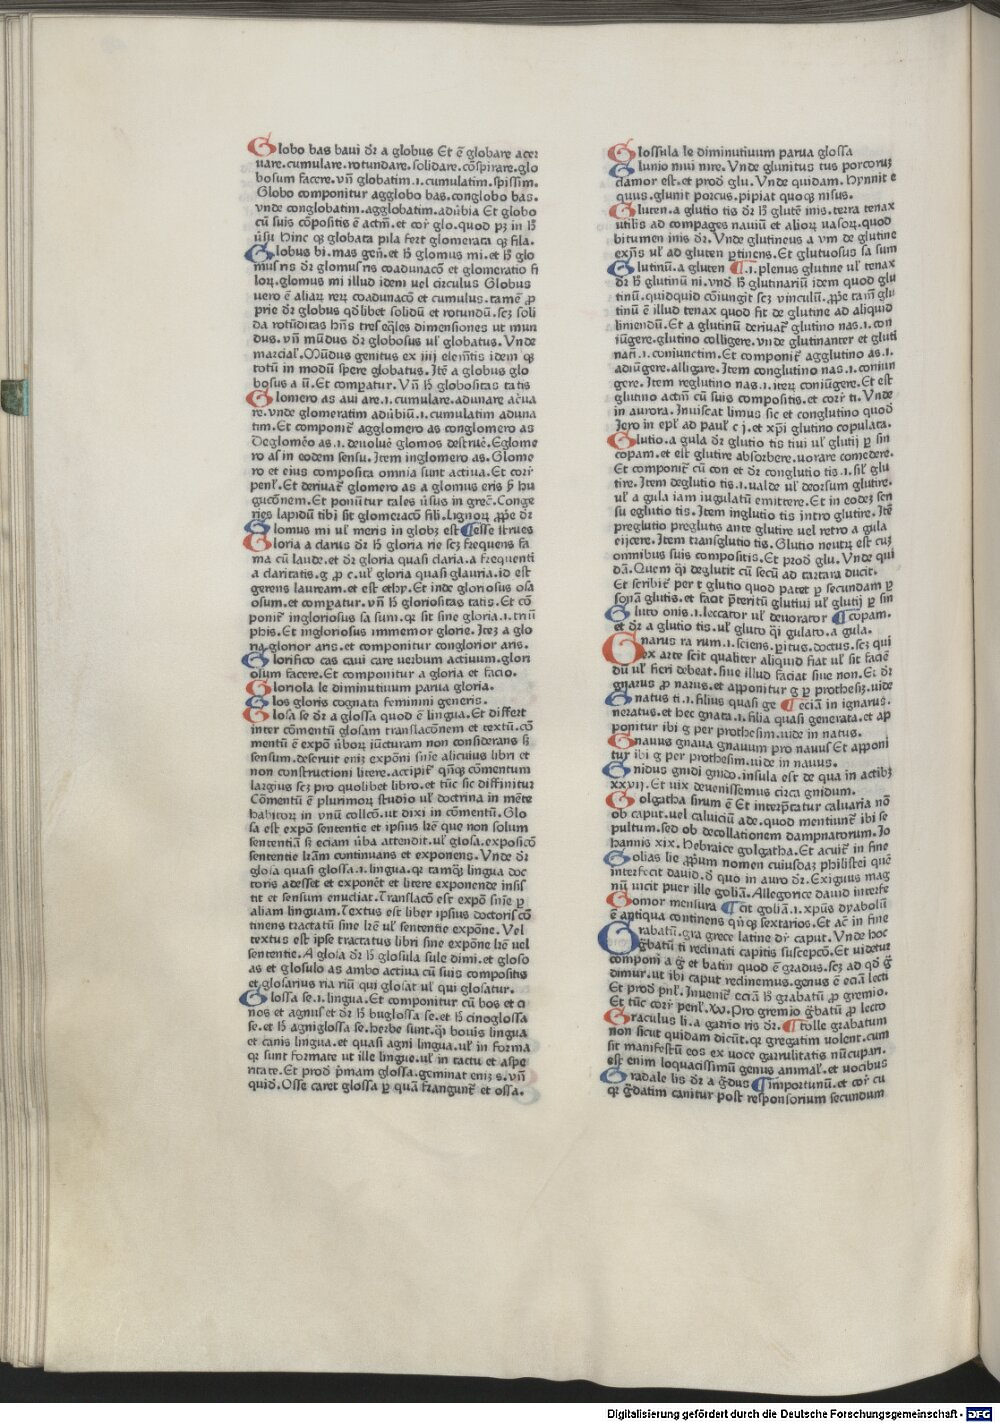 Globo bas baui dr̄ a globus Et ē globare acer
uare.cumulare.rotundare.solidare.cōspirare.glo
bosum facere.vn̄ globatim.i.cumulatim.spissim.
Globo componitur agglobo bas.conglobo bas.
vnde conglobatim.agglobatim.adūbia Et globo
cū suis cōpositis ē actm̄.et cor̄ glo.quod pꝫ in hͦ
ūsu Hinc qꝫ globata pila fert glomerata qꝫ fila.
Globus bi.mas gen̄.et hͦ glomus mi.et hͦ glo
mus ris dr̄ glomus ris coadunacō et glomeratio fi
loꝝ.glomus mi illud idem uel circulus Globus
uero ē aliaꝝ reꝝ coadunacō et cumulus.tamē ꝓ
prie dr̄ globus qd̄libet solidū et rotundū.scꝫ soli
da rotūditas hn̄s tres eq̄les dimensiones ut mun
dus.vn̄ mūdus dr̄ globosus ul̕ globatus. Vnde
marcial̕. Mūdus genitus ex iiij elem̄tis idem qꝫ
totū in modū spere globatus. Itē a globus glo
bosus a ū.Et comꝑatur. Vn̄ hͦ globositas tatis
Glomero as aui are.i.cumulare.adunare acūa
re.vnde glomeratim adūbiū.i.cumulatim aduna
tim.Et componit̕ agglomero as conglomero as
Deglomēo as.i.deuoluē glomos destruē.Eglome
ro as in eodem sensu. Item inglomero as. Glome
ro et eius composita omnia sunt actiua.Et corr̄
penl̕. Et deriuat̕ glomero as a glomus eris ẜm hu
gucōnem.Et ponūtur tales ūsus in grec̄. Conge
ries lapidū tibi sit glomeracō fili.Lignoꝝ ꝓpe dr̄
Glomus mi ul̕ meris in globꝫ est ¶esse strues
Gloria a clarus dr̄ hͦ gloria rie scꝫ frequens fa
ma cū laude.et dr̄ gloria quasi claria.a frequenti
a claritatis.g ꝓ c.ul̕ gloria quasi glauria.id est
gerens lauream.et est ethy.Et inde gloriosus osa
osum.et comꝑatur.vn̄ hͦ gloriositas tatis. Et cō
ponit̕ ingloriosus sa sum.qꝫ sit sine gloria.i.triū
phis.Et ingloriosus immemor glorie. Iteꝫ a glo
ria glorior aris.et componitur conglorior aris.
Glorifico cas caui care uerbum actiuum.glori
osum facere.Et componitur a gloria et facio.
Gloriola le diminutiuum parua gloria.
Glos gloris cognata feminini generis.
Glosa se dr̄ a glossa quod ē lingua.Et differt
inter cōmentū glosam translacōnem et textū.cō
mentū ē expō ūboꝝ iūcturam non considerans sꝫ
sensum.deseruit eniꝫ expōni sn̄ie alicuius libri et
non constructioni litere.accipit̕ qn̄qꝫ cōmentum
largius scꝫ pro quolibet libro.et tūc sic diffinitur
Cōmentū ē plurimoꝝ studio ul̕ doctrina in mēte
habitoꝝ in vnū collcō.ut dixi in cōmentū. Glo
sa est expō sententie et ipsius lr̄e que non solum
sententiā sꝫ eciam ūba attendit.ul̕ glosa.exposicō
sententie lr̄am continuans et exponens. Vnde dr̄
glosa quasi glossa.i.lingua.qꝫ tamqꝫ lingua doc
toris adesset et exponēt et litere exponende insis
tit et sensum enucliat. Translacō est expō sn̄ie ꝑ
aliam linguam. Textus est liber ipsius doctoris cō
tinens tractatū sine lr̄e ul̕ sententie expōne. Vel
textus est ipse tractatus libri sine expōne lr̄e uel
sententie.A glosa dr̄ hͦ glosula sule dimi.et gloso
as et glosulo as ambo actiua cū suis compositis
et glosarius ria riū qui glosat ul̕ qui glosatur.
Glossa se.i.lingua.Et componitur cū bos et ci
nos et agnus et dr̄ hͦ buglossa se.et hͦ cinoglossa
se.et hͦ agniglossa se.herbe sunt.qͥ bouis lingua
et canis lingua.et quasi agni lingua.ul̕ in forma
qꝫ sunt formate ut ille lingue.ul̕ in tactu et aspe
ritate.Et prod̄ pͥmam glossa.geminat eniꝫ s.vn̄
quid̄. Osse caret glossa ꝑ quā frangunt̕ et ossa.
Glossula le diminutiuum parua glossa
Glunio niui nire. Vnde glunitus tus porcoruꝫ
clamor est.et prod̄ glu. Vnde quidam. Hynnit e
quus.glunit porcus.pipiat quoqꝫ nisus.
Gluten.a glutio tis dr̄ hͦ glutē inis.terra tenax
utilis ad compages nauiū et alioꝝ uasoꝝ.quod
bitumen inis dr̄. Vnde glutineus a vm de glutine
exn̄s ul̕ ad gluten ꝑtinens.Et glutuosus sa sum
Glutinū.a gluten ¶.i.plenus glutine ul̕ tenax
dr̄ hͦ glutinū ni.vnd̄ hͦ glutinariū idem quod glu
tinū.quidquid cōiungit scꝫ vinculū.ꝓpe tam̄ glu
tinū ē illud tenax quod fit de glutine ad aliquid
liniendū.Et a glutinū deriuat̕ glutino nas.i.con
iūgere.glutino colligere.vnde glutinanter et gluti
natī.i.coniunctim.Et componit̕ agglutino as.i.
adiūgere.alligare. Item conglutino nas.i.coniun
gere. Item reglutino nas.i.iteꝝ coniūgere.Et est
glutino actm̄ cū suis compositis.et corr̄ ti. Vnde
in aurora. Inuiscat limus sic et conglutino quod
Iero in epl̕ ad paul̕ c j.et xp̄i glutino copulata.
Glutio.a gula dr̄ glutio tis tiui ul̕ glutij ꝑ sin
copam.et est glutire absorbere.uorare comedere.
Et componit̕ cū con et dr̄ conglutio tis.i.sil̕ glu
tire. Item deglutio tis.i.ualde ul̕ deorsum glutire.
ul̕ a gula iam iugulatū emittere.Et in eodeꝫ sen
su eglutio tis. Item inglutio tis intro glutire. Itē
preglutio preglutis ante glutire uel retro a gula
eijcere. Item transglutio tis. Glutio neutꝝ est cuꝫ
omnibus suis compositis.Et prod̄ glu. Vnde qui
dā. Quem qͥ deglutit cū secū ad tartara ducit.
Et scribit̕ per t glutio quod patet ꝑ secundam ꝑ
sonā glutis.et facit p̄teritū glutiui ul̕ glutij ꝑ sin
Gluto onis.i.leccator ul̕ deuorator ¶copam.
et dr̄ a glutio tis.ul̕ gluto qͥi gulato.a gula.
Gnarus ra rum.i.sciens.ꝑitus.doctus.scꝫ qui
ex arte scit qualiter aliquid fiat ul̕ sit faciē
dū ul̕ fieri debeat.siue illud faciat siue non.Et dr̄
gnarus ꝓ narus.et apponitur g ꝑ prothesiꝫ.uide
Gnatus ti.i.filius quasi ge ¶eciā in ignarus.
neratus.et hec gnata.i.filia quasi generata.et ap
ponitur ibi g per prothesim.uide in natus.
Gnauus gnaua gnauum pro nauus Et apponi
tur ibi g per prothesim.uide in nauus.
Gnidus gnidi gnido.insula est de qua in actibꝫ
xxvij.Et uix deuenissemus circa gnidum.
Golgatha sirum ē Et interp̄tatur caluaria nō
ob caput.uel caluiciū ade.quod mentiunt̕ ibi se
pultum.sed ob decollationem dampnatorum. Io
hannis xix. Hebraice golgatha.Et acuit̕ in fine
Golias lie ꝓpͥum nomen cuiusdaꝫ philistei quē
interfecit dauid.d̄ quo in auro dr̄. Exiguus mag
nū uicit puer ille goliā. Allegorice dauid interfe
Gomor mensura ¶cit goliā.i.xpūs dyabolū
ē antiqua continens qn̄qꝫ sextarios.Et ac̄ in fine
Grabatū.gra grece latine dr̄ caput. Vnde hoc
gͣbatū ti reclinati capitis suscepcō.Et uidetur
componi a gͣ et batin quod ē gradus.scꝫ ad qd̄ gͣ
dimur.ut ibi caput reclinemus.genus ē eciā lecti
Et prod̄ pnl̕. Inuenit̕ eciā hͦ grabatū ꝓ gremio.
Et tūc corr̄ penl̕.xv. Pro gremio gͣbatū ꝓ lecto
Graculus li.a garrio ris dr̄. ¶tolle grabatum
non sicut quidam dicūt.qꝫ gregatim volent.cum
sit manifestū eos ex uoce garrulitatis nūcupari.
est enim loquacissimū genus animal̕.et uocibus
Gradale lis dr̄ a gͣdus ¶importunū.et cor̄ cu
qꝫ gͣdatim canitur post responsorium secundum
Digitalisierung gefördert durch die Deutsche Forschungsgemeinschaft - DFG